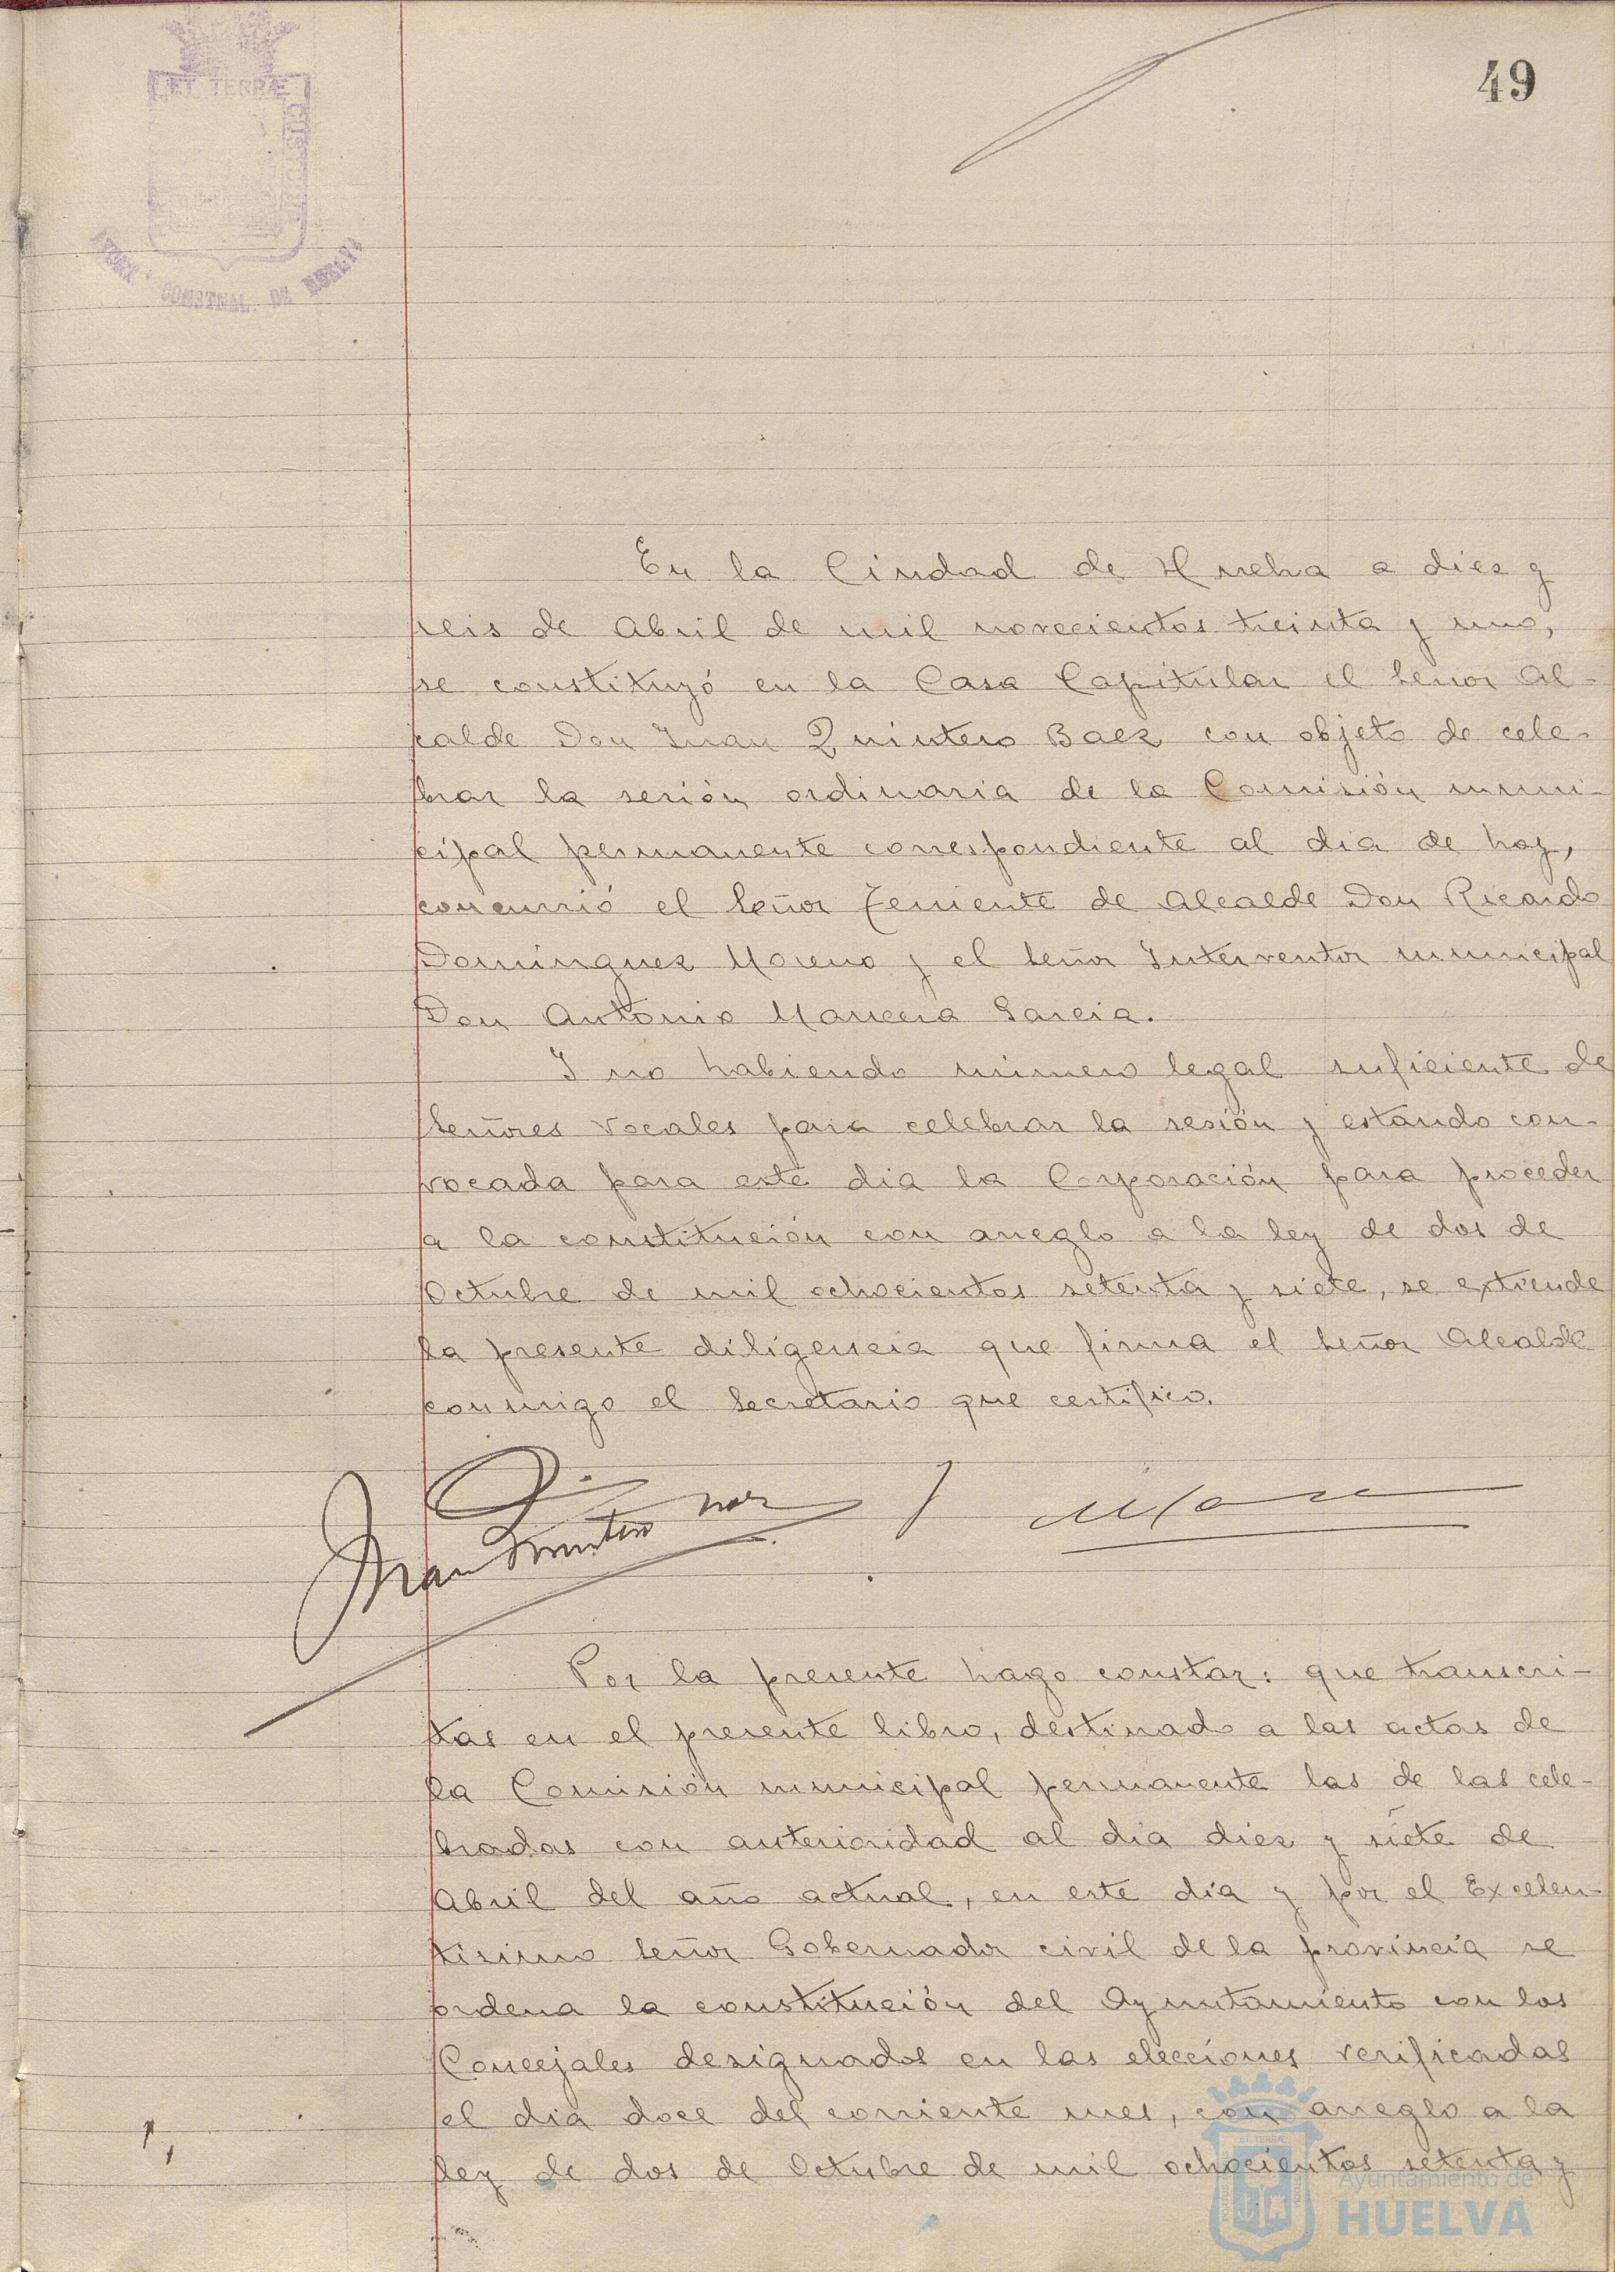 49
ET TERRÆ
CUSTODIA
CONSTNAL. DE HUELVA
En la Ciudad de Huelva a diez y
seis de Abril de mil novecientos treinta y uno,
se constituyó en la Casa Capitular el Señor Al-
calde Don Juan Quintero Baez con objeto de cele-
brar la sesión ordinaria de la Comisión muni-
cipal permanente correspondiente al dia de hoy,
concurrió el Señor Teniente de Alcalde Don Ricardo
Dominguez Moreno y el Señor Interventor municipal
Don Antonio Mancera Garcia.
Y no habiendo número legal suficiente de
Señores Vocales para celebrar la sesión y estando con-
vocada para este dia la Corporación para proceder
a la constitución con arreglo a la ley de dos de
Octubre de mil ochocientos setenta y siete, se extiende
la presente diligencia que firma el Señor Alcalde
conmigo el Secretario que certifico.
Juan Quintero
Por la presente hago constar: que transcri-
tas en el presente libro, destinado a las actas de
la Comisión municipal permanente las de las cele-
bradas con anterioridad al dia diez y siete de
Abril del año actual, en este día y por el Excelen-
tisimo Señor Gobernador civil de la provincia se
ordena la constitución del Ayuntamiento con los
Concejales designados en las elecciones verificadas
el dia doce del corriente mes, con arreglo a la
ley de dos de Octubre de mil ochocientos setenta y
Ayuntamiento de
HUELVA